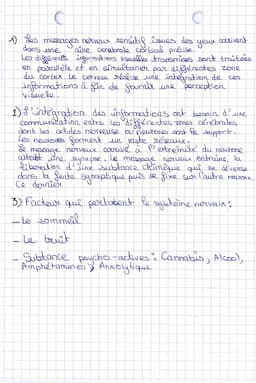 1) Les messages nerveux sensitif issues des yeux arrivent
dans une aire cerebrale corticale précise.
Les différents informations visuelles transmises sont traitées
en parallèle et en simultanée par différentes zone
du cortex. Le cerveau réalise une intégration de ces
informations à fin de fournir une perception
visuelle.
2) L'intégration des informations ont besoin d'une
communication entre les différentes zones cérébrales
dont les cellules nerveuse ou neurones sont le support.
Les neurones forment un vaste réseaux.
Le message nerveux arrivé à l'extrémité du neurone
atteint une synapse. Le message nerveux entraine la
libération d'une substance chimique qui se déverse
dans la fente synaptique puis se fixe sur l'autre neurone
Ce dernier
3) Facteur qui perturbent le système nerveux :
- Le sommeil
- Le bruit
- Substance psycho-actives : Cannabis, Alcool,
Amphétamines, Anxiolytique